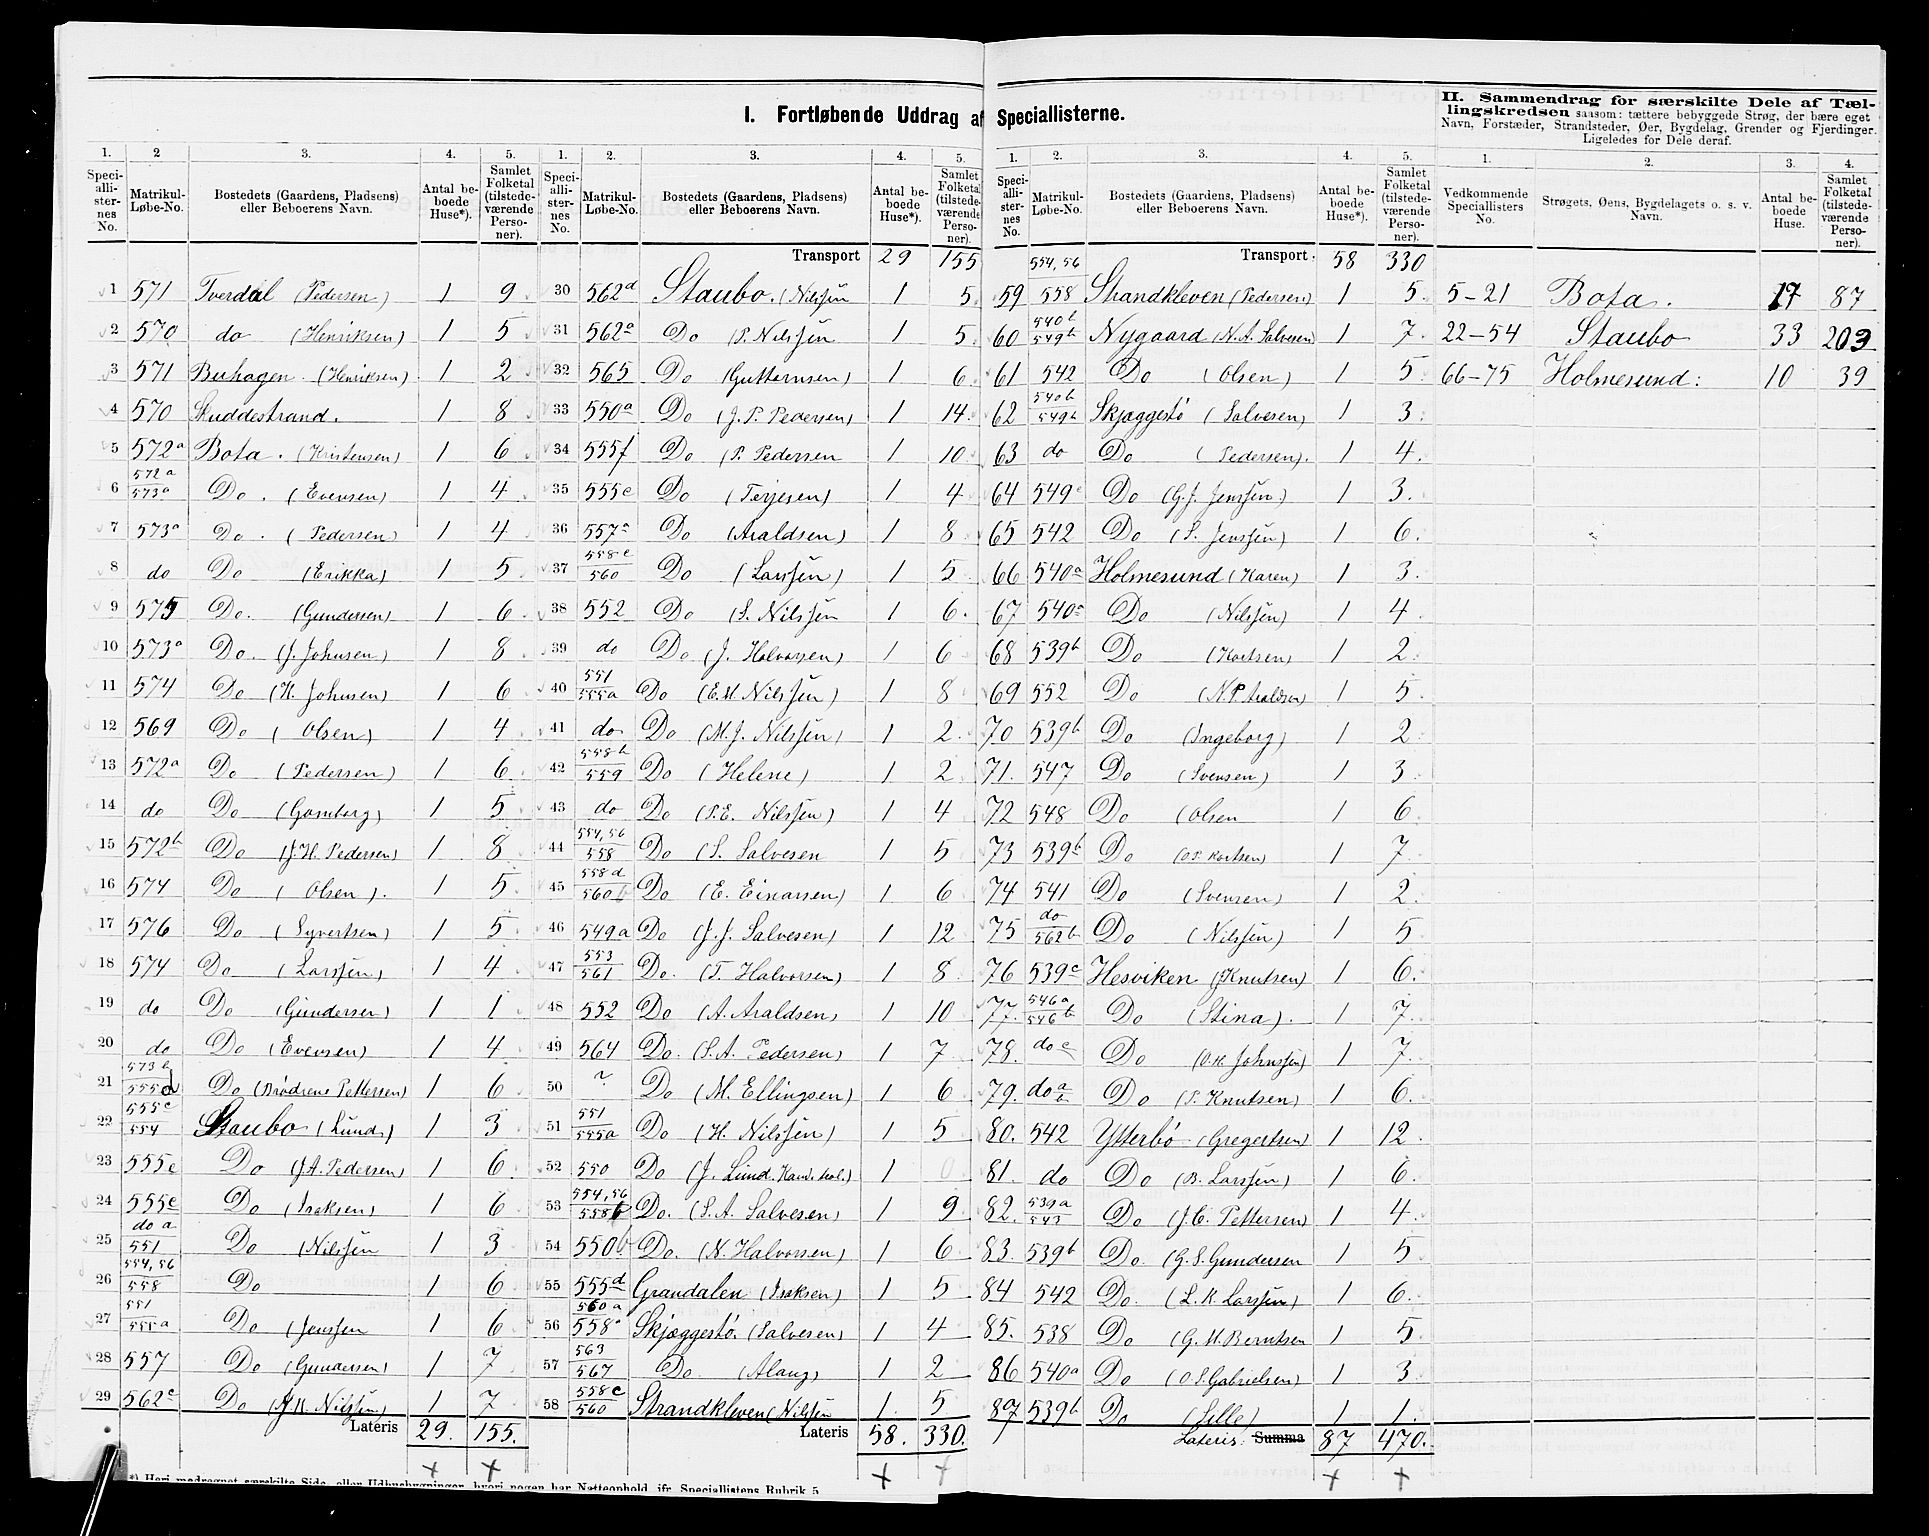 I. Fortløbende Uddrag af Speciallisterne.
II. Sammendrag for særskilte Dele af Tællingskredsen saasom: tættere bebyggede Strøg, der bære eget
Navn, Forstæder, Strandsteder, Øer, Bygdelag, Grender og Fjerdinger.
Ligeledes for Dele deraf.
1. 2 3. 4. 5.
Speciallisternes No. Matrikul-Løbe-No. Bostedets (Gaardens, Pladsens) eller Beboerens Navn. Antal beboede Huse*). Samlet Folketal (tilstedeværende Personer).
1 571 Tverdal (Pedersen) 1 9
2 570 do (Henriksen) 1 5
3 571 Buhagen (Henriksen) 1 2
4 570 Skuddestrand. 1 8
5 572a Bota. (Kristensen) 1 6
6 572a 573a Do. (Evensen) 1 4
7 573a Do. (Pedersen) 1 4
8 do Do (Erikka) 1 5
9 575 Do. (Gundersen) 1 6
10 573a Do. (J. Johnsen) 1 8
11 574 Do (K. Johnsen) 1 6
12 569 Do (Olsen) 1 4
13 572a Do (Pedersen) 1 6
14 do Do (Gomborg) 1 5
15 572b Do (J.H. Pedersen) 1 8
16 574 Do (Olsen). 1 5
17 576 Do (Syvertsen) 1 5
18 574 Do (Larssen) 1 4
19 do Do (Gundersen) 1 1
20 do Do (Evensen) 1 4
21 573b 555d Do (Brødrene Pettersen) 1 6
22 555c 554 Staubo (Lund) 1 3
23 555c Do (J.A. Pedersen) 1 6
24 555c Do (Isaksen) 1 6
25 do a 551 Do (Nilssen 1 3
26 554,56 558 Do 1 6
27 551 555a Do (Jenssen 1 6
28 557 Do (Gundersen) 1 7
29 562c Do (J.K. Nilssen) 1 7
Lateris 29. 155.
1. 2. 3. 4. 5.
Speciallisternes No. Matrikul-Løbe-No. Bostedets (Gaardens, Pladsens) eller Beboerens Navn. Antal beboede Huse*). Samlet Folketal (tilstedeværende Personer).
Transport 29 155
30 562d Staubo. (Nilssen 1 5
31 562e Do (P. Nilssen 1 5
32 565 Do (Guttormsen) 1 6
33 550a Do (J.P. Pedersen) 1 14
34 555f Do (P. Pedersen 1 10
35 555e Do (Terjesen) 1 4
36 557a Do (Araldsen) 1 8
37 558c 560 Do (Larssen) 1 5
38 552 Do (S. Nilssen 1 6.
39 do Do (J. Halvorsen) 1 6
40 551 555a Do (E.M. Nilssen) 1 8
41 do Do (M.J. Nilssen) 1 2
42 558b 559 Do (Helene) 1 2
43 do Do (P.E. Nilssen) 1 4
44 554,56 558 Do (S. Salvesen 1 5
45 558d 560b Do (E. Einarsen) 1 6
46 549a Do (J.J. Salvesen) 1 12
47 553 561 Do. (T. Halvorsen) 1 8
48 552 Do (A. Araldsen) 1 10
49 564 Do. (S.A. Pedersen) 1 7
50 ? Do (M. Ellingsen) 1 6
51 551 555a Do (H. Nilssen) 1 5
52 550 Do (J. Lund. Kand. teol.) 1 0
53 554,56 558b Do. (S.A. Salvesen) 1 9
54 550b Do. (N. Halvorsen) 1 6
55 555d Grandalen (Isaksen) 1 5
56 560a 558a Skjæggestø. (Salvesen) 1 4
57 563 567 Do (Alang) 1 2
58 558c 560 Strandkleven (Nilssen 1. 5
Lateris 58. 330.
1. 2. 3. 4. 5.
Speciallisternes No. Matrikul-Løbe-No. Bostedets (Gaardens, Pladsens) eller Beboerens Navn. Antal beboede Huse*). Samlet Folketal (tilstedeværende Personer).
Transport 58 330
59 554,56 558 Strandkleven (Pedersen) 1 5
60 540b 549b Nygaard (N.A. Salvesen) 1 7
61 542 Do (Olsen) 1 5
62 540b 549b Skjæggestø (Salvesen) 1 3
63 do Do (Pedersen). 1 4.
64 549c Do (G.J. Jenssen) 1 3.
65 542 Do (S. Jenssen) 1 6.
66 540a Holmesund (Karen) 1 3.
67 540a Do (Nilssen) 1 4
68 539b Do (Kortsen) 1 2
69 552 Do (N.P. Araldsen) 1 5
70 539b Do (Ingeborg) 1 2
71. 547 Do (Svensen) 1 3
72 548 Do (Olsen 1 6
73 539b Do (O.P. Kortsen) 1 7
74 541 Do (Svensen) 1 2
75 do 562b Do (Nilssen) 1 5
76 539c Hesviken (Knutsen) 1 6.
77. 546a 546b Do (Stina). 1 7
78. do c Do (O.K. Johnssen) 1 7
79. do a b Do (P. Knutsen) 1 6.
80. 542 Ytterbø (Gregertsen) 1 12.
81. do Do (B. Larssen) 1 6.
82. 539a 543 Do (J.C. Pettersen) 1 4.
83. 539b Do. (G.S. Gundersen 1 5
84 542 Do. (L.K. Larssen) 1 6.
85. 538 Do (G.M. Berntsen 1 5
86 540a Do (O.S. Gabrielsen) 1 3
87 539b Do (Lille) 1 1.
Lateris. Summa 87 470.
1. 2. 3. 4.
Vedkommende Speciallisters No. Strøgets, Øens, Bygdelagets o. s. v. Navn. Antal beboede Huse. Samlet Folketal (tilstedeværende Personer).
5-21 Bota. 17 87
22-54 Staubo 33 203
66-75 Holmesund: 10 39
*) Heri medregnet særskilte Side- eller Udhusbygninger, hvori nogen har Natteophold, jfr. Speciallistens Rubrik 5.